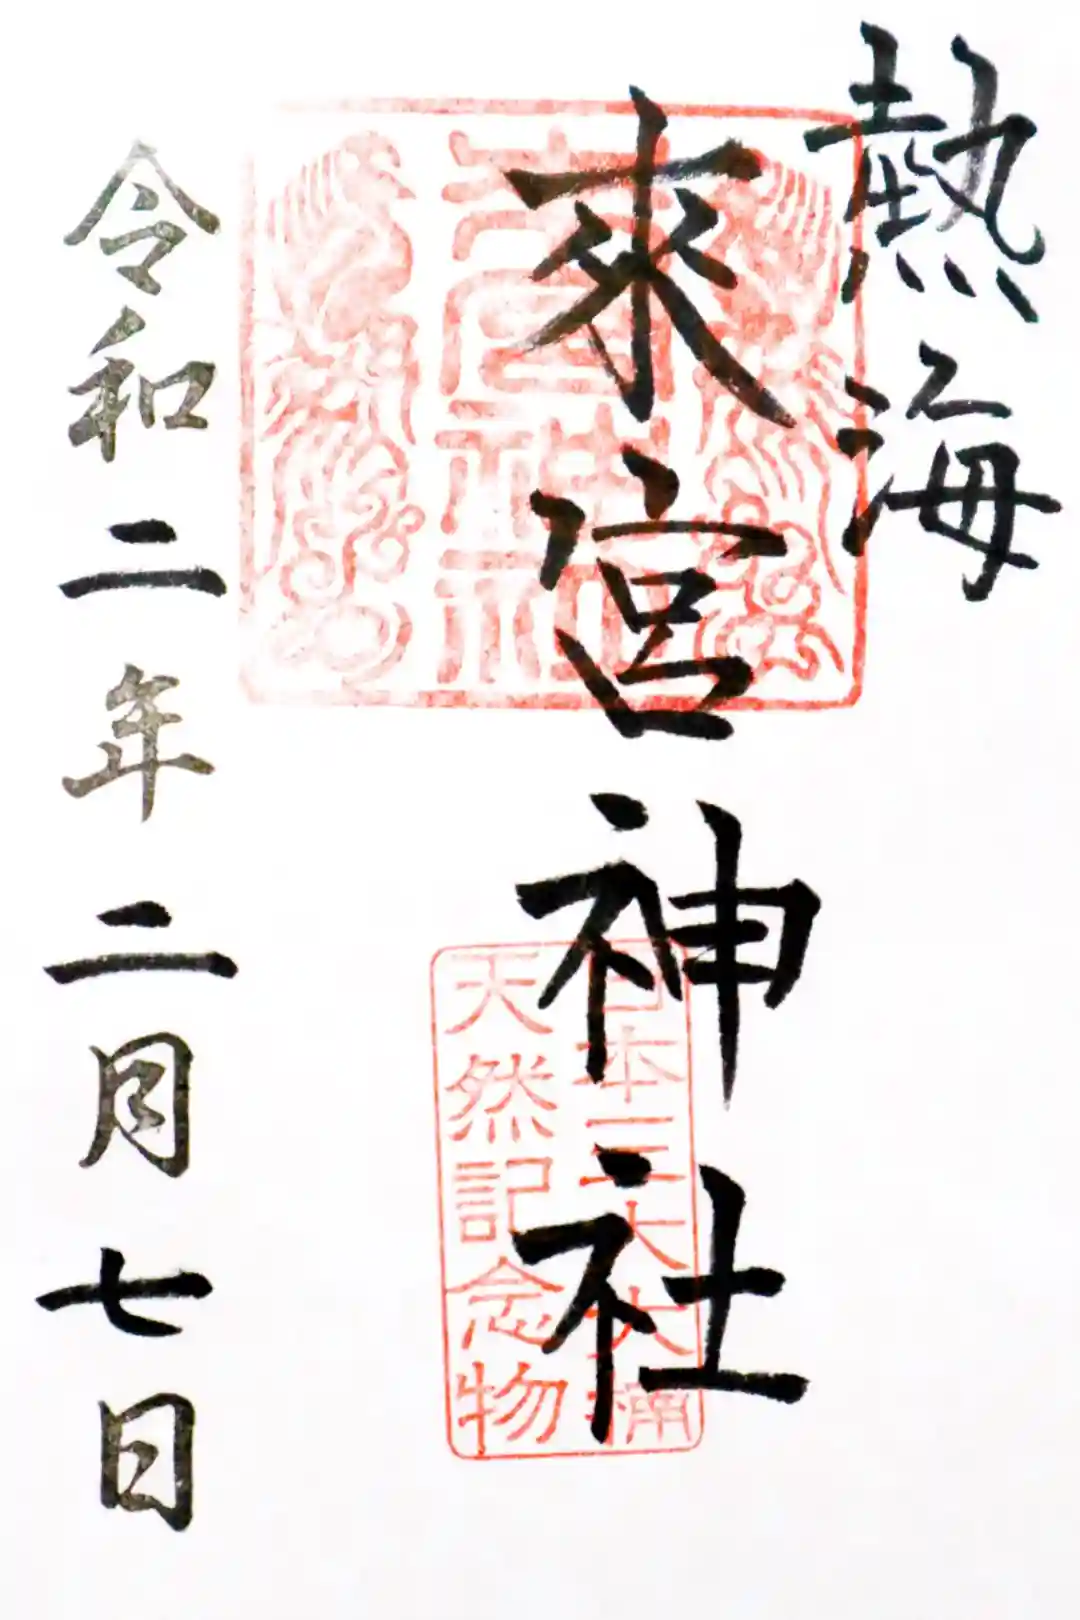 熱海
來宮神社
来宮神社
日本三大大楠
天然記念物
令和二年二月七日